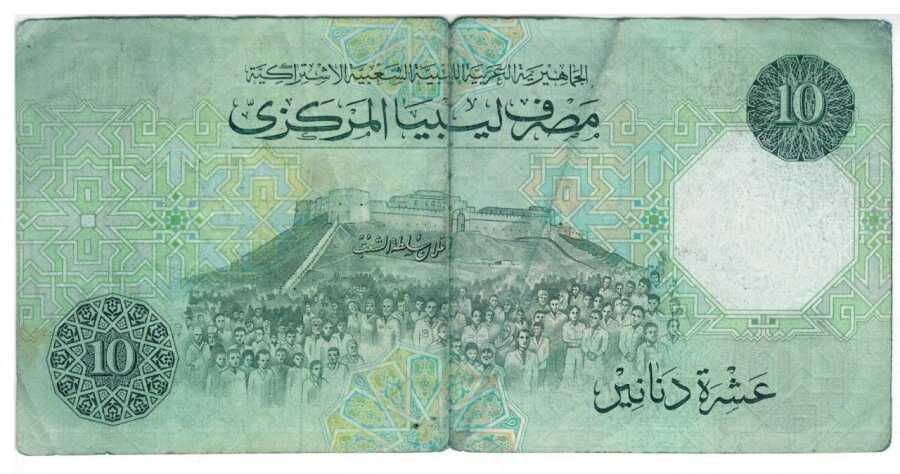 الجماهيرية العربية الليبية الشعبية الاشتراكية
مصرف ليبيا المركزي
10
سلطة الشعب
10
عشرة دنانير